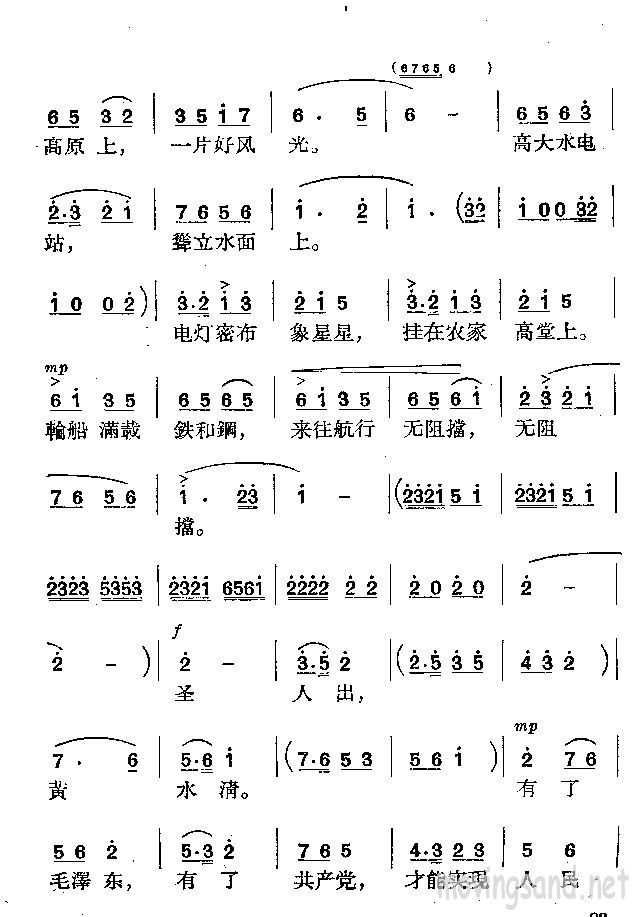 (6765 6 )
65 32 | 3 5 1 7 | 6 . 5 | 6 - | 6 5 6 3
高原 上， 一片好风 光。 高大水电
2·3 2 1 | 7 6 5 6 | 1 . 2 | 1 . (32 | 1 00 32
站， 聳立水面 上。
1 0 0 2 ) | 3·2 1 3 | 2 1 5 | 3·2 1 3 | 2 1 5
电灯密布 象星星， 挂在农家 高堂上。
mp
6 1 3 5 | 6 5 6 5 | 6 1 3 5 | 6 5 6 1 | 2 3 2 1
輪船 满載 鉄和鋼， 来往航行 无阻擋， 无阻
7 6 5 6 | 1 . 23 | 1 - | (2321 5 1 | 2321 5 1
擋。
2323 5353 | 2321 6561 | 2222 2 2 | 2 0 2 0 | 2 -
f
2 - ) | 2 - | 3·5 2 | (2·5 3 5 | 4 3 2 )
圣 人 出，
mp
7 . 6 | 5·6 1 | (7·6 5 3 | 5 6 1 ) | 2 7 6
黄 水 清。 有 了
5 6 2 | 5·3 2 | 7 6 5 | 4·3 2 3 | 5 6
毛澤 东， 有 了 共产党， 才能实现 人 民
movingsand.net